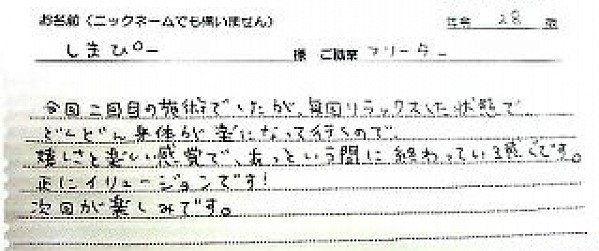 お名前（ニックネームでも構いません） 28 歳
しまぴー 様 ご職業 フリーター
今回二回目の施術でしたが、毎回リラックスした状態で
どんどん身体が楽になって行くので、
嬉しさと楽しい感覚で、あっという間に終わっている感じです。
正にイリュージョンです!
次回が楽しみです。